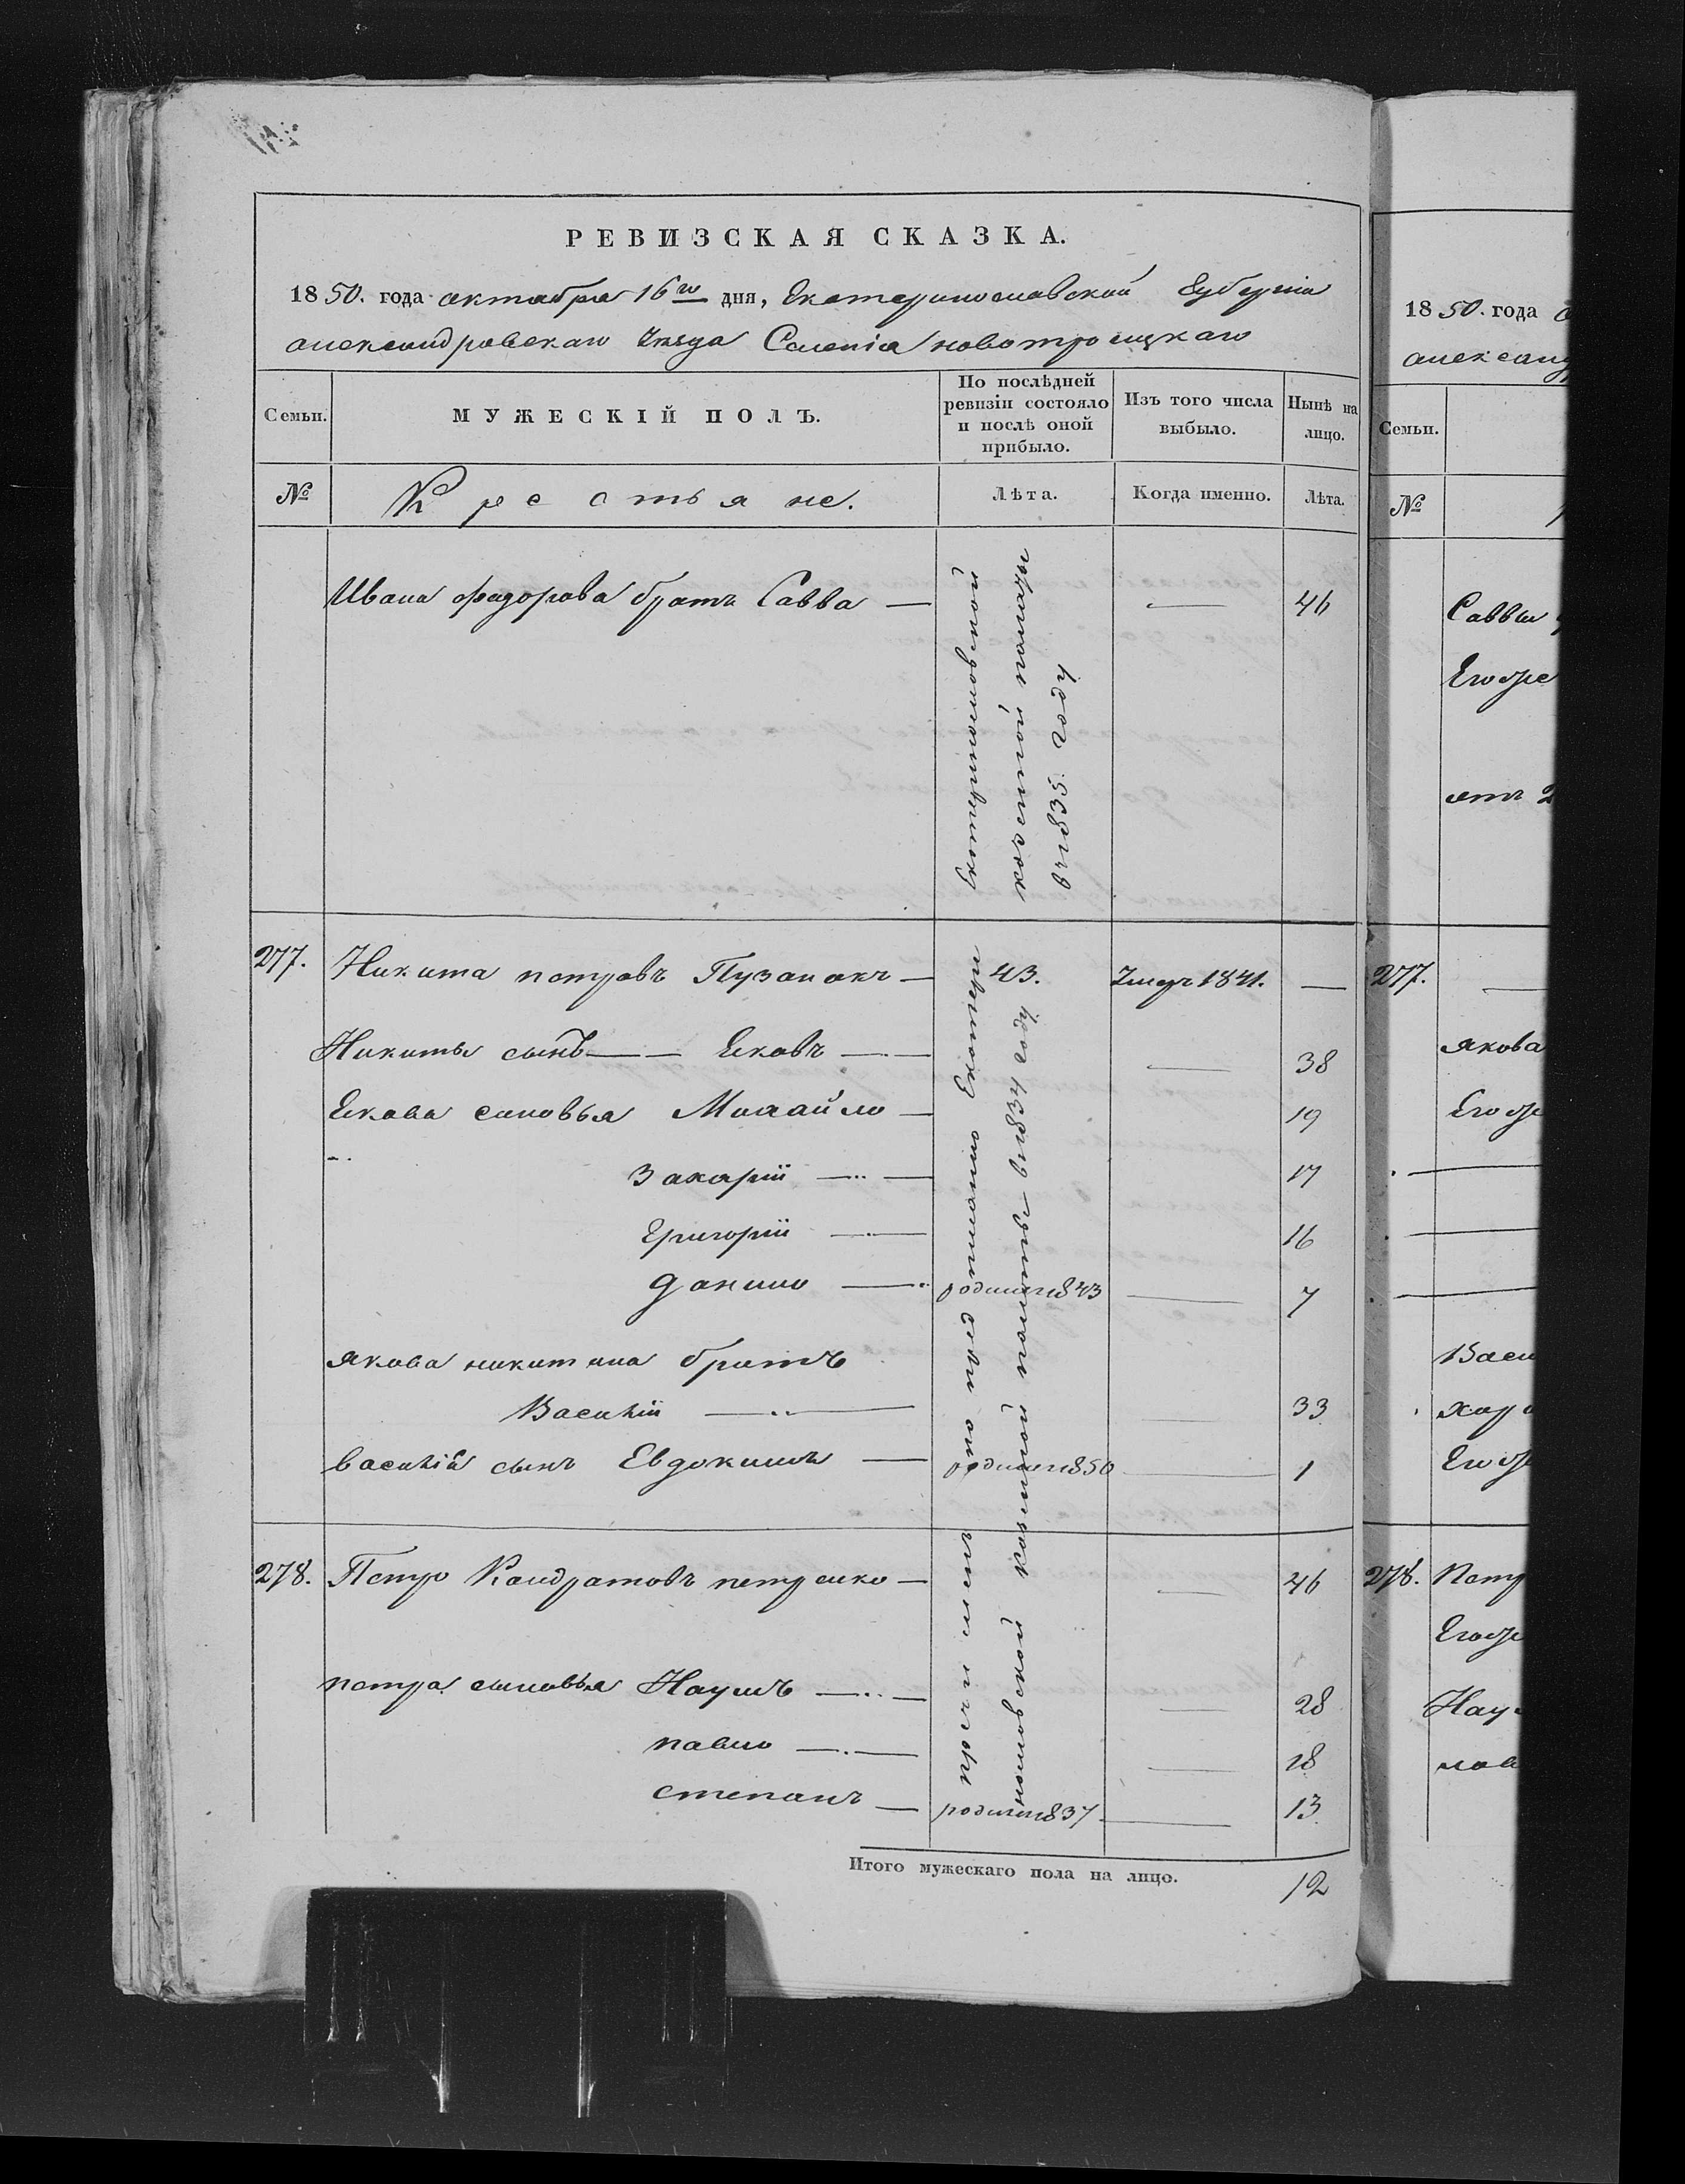 РЕВИЗСКАЯ СКАЗКА.
1850. года октабра 16го дня, Екатеринославской Губернiи
александровскаго Уезда Селенiя новотроецкаго
Семьи.
МУЖЕСКІЙ ПОЛЪ.
По послѣдней
ревизіи состояло
и послѣ оной
прибыло.
Изъ того числа
выбыло.
Нынѣ на
лицо.
№
Крестьяне.
Лѣта.
Когда именно.
Лѣта.
Ивана федорова братъ Савва — — 46
Екатеринославской
казенной палаты
въ 1835 году
277. Никита петровъ Пузанокъ — 43. Умеръ 1841. —
Никиты сынъ —— Яковъ — — — 38
Якова синовья Михайло — 19
Захарiй — — 17
Григорiй — 16
Данило — родилъ 1843 — 7
Якова никитина братъ
Василiй — 33
василiя сынъ Евдокимъ — родилъ 1850 — 1
причисленъ по предписанiю Екатери
нославской казенной палаты въ 1834 году
278. Петро Кондратовъ петренко — — 46
петра сыновья Наумъ — — 28
павло — — 18
степанъ — родилъ 1837 — 13
Итого мужескаго пола на лицо. 12
1850. года
александ
Семьи.
№
Саввы
Его же
отъ 2
277. —
якова
Его же
Васи
хар
Его же
278. Петр
Его же
Нау
пав